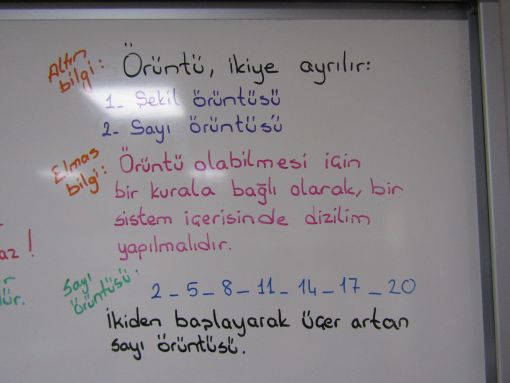 Altın bilgi: Örüntü, ikiye ayrılır:
1- Şekil örüntüsü
2- Sayı örüntüsü
Elmas bilgi: Örüntü olabilmesi için
bir kurala bağlı olarak, bir
sistem içerisinde dizilim
yapılmalıdır.
az !
ür.
Sayı örüntüsü: 2 - 5 - 8 - 11 - 14 - 17 - 20
İkiden başlayarak üçer artan
sayı örüntüsü.